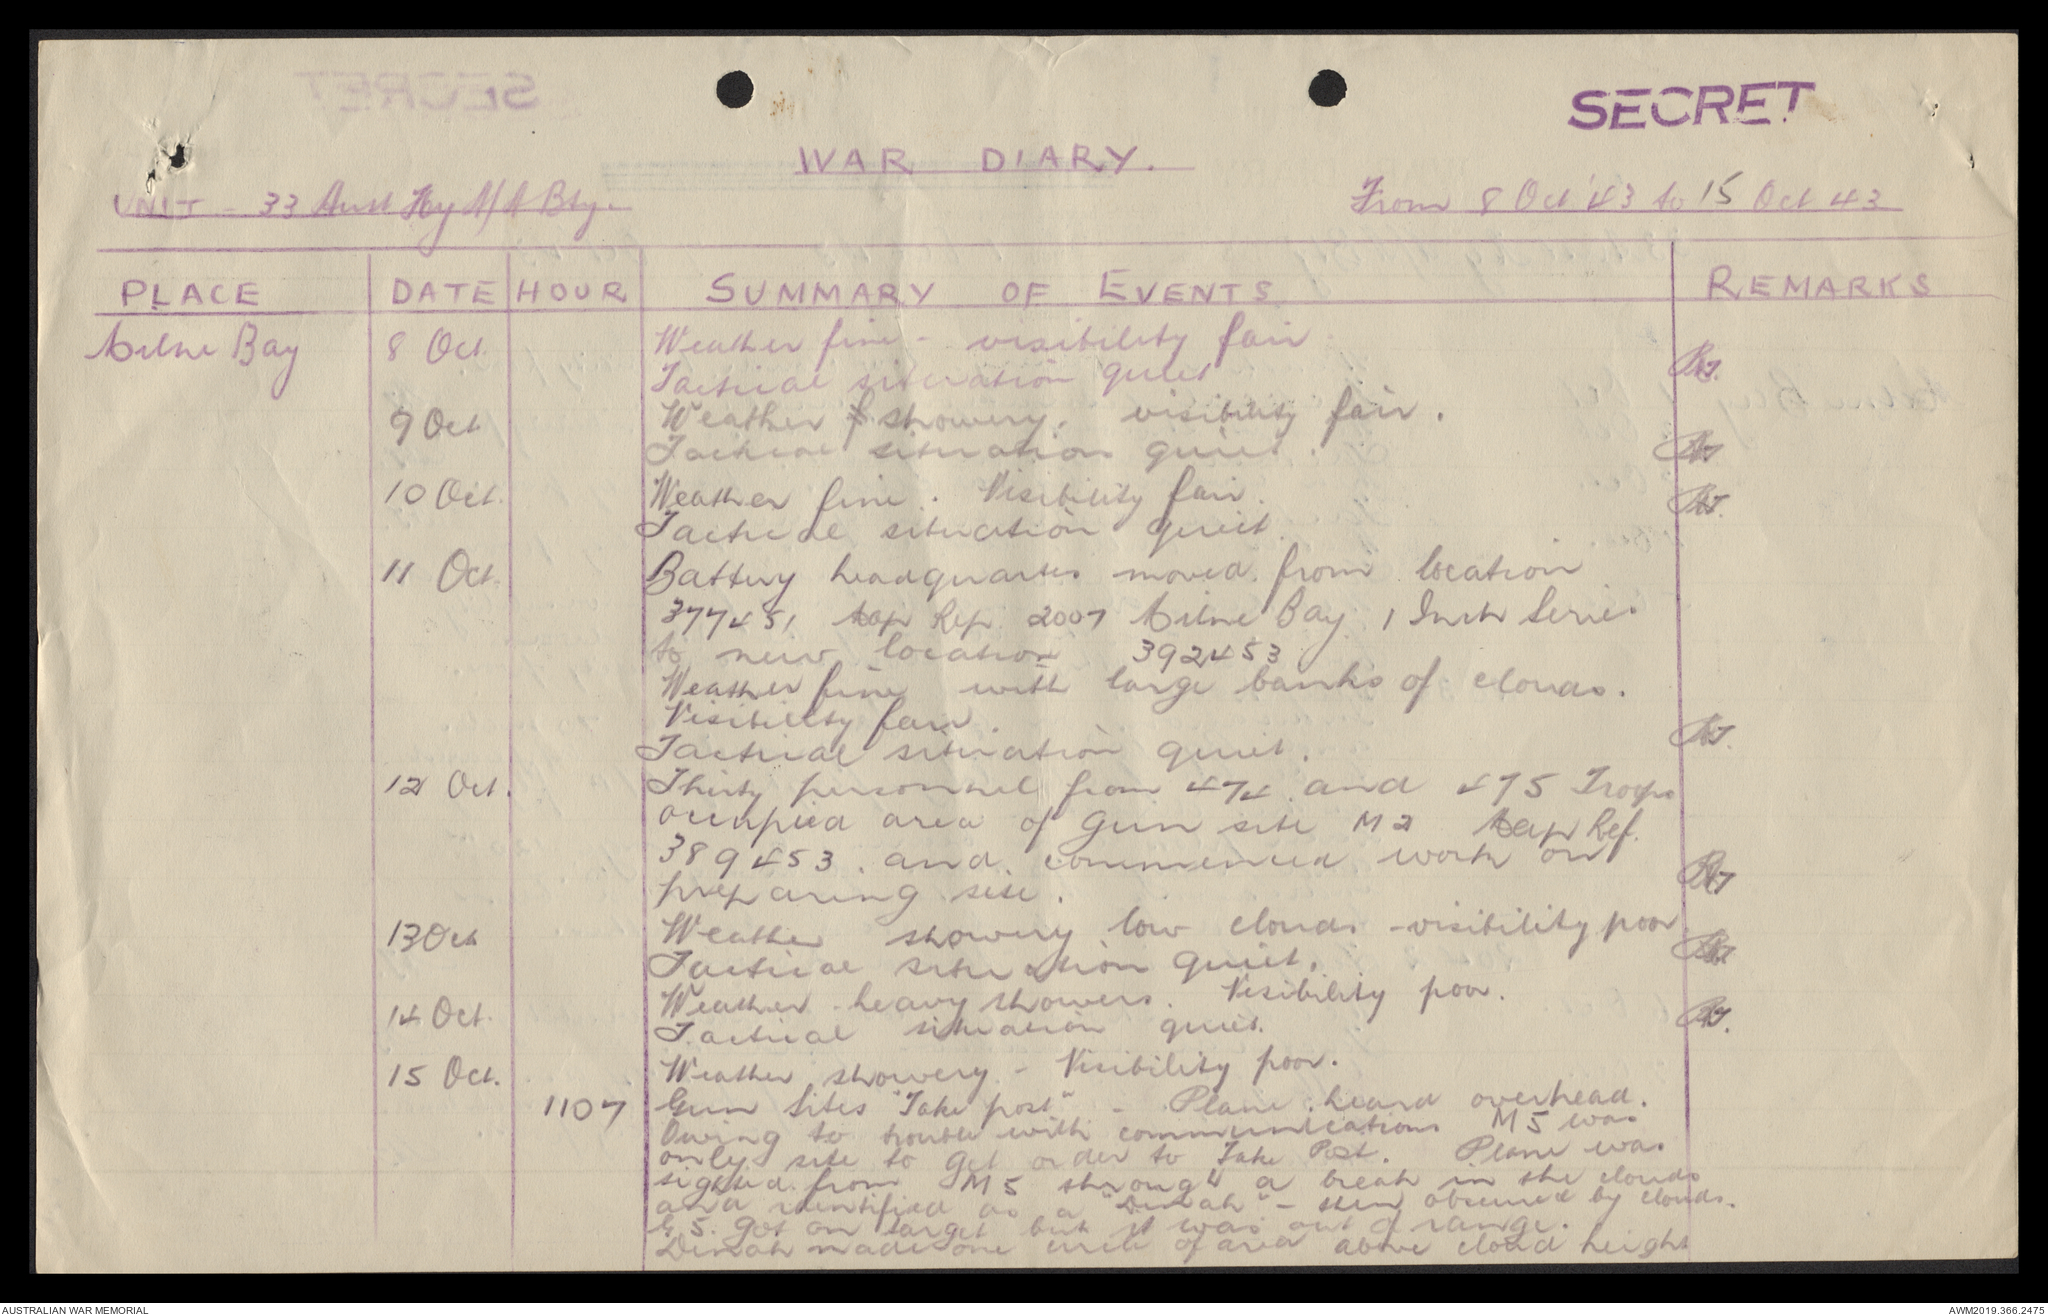 SECRET
WAR DIARY.
UNIT - 33 Aust Hy A/A Bty.
From 8 Oct '43 to 15 Oct 43
PLACE DATE HOUR SUMMARY OF EVENTS REMARKS
Milne Bay 8 Oct. Weather fine - visibility fair
Tactical situation quiet
9 Oct Weather showery. visibility fair.
Tactical situation quiet.
10 Oct. Weather fine. Visibility fair.
Tactical situation quiet.
11 Oct. Battery headquarters moved from location
377451 Map Rep 2007 Milne Bay 1 Inch Series
to new location 392453
Weather fine with large banks of clouds.
Visibility fair.
Tactical situation quiet.
12 Oct. Thirty personnel from 474 and 475 Troops
occupied area of Gun site M2 Map Ref.
389453. and commenced work on
preparing site.
13 Oct Weather showery low clouds - visibility poor
Tactical situation quiet.
14 Oct. Weather - heavy showers. Visibility poor.
Tactical situation quiet.
15 Oct. Weather showery - Visibility poor.
1107 Gun Sites "Take post" - Plane heard overhead.
Owing to trouble with communications M5 was
only site to get order to Take Post. Plane was
sighted from M5 through a break in the clouds
and identified as a "Dinah" - then obscured by clouds.
G.S. got on target but it was out of range.
Dinah made one circle of area above cloud height
AUSTRALIAN WAR MEMORIAL
AWM2019.366.2475